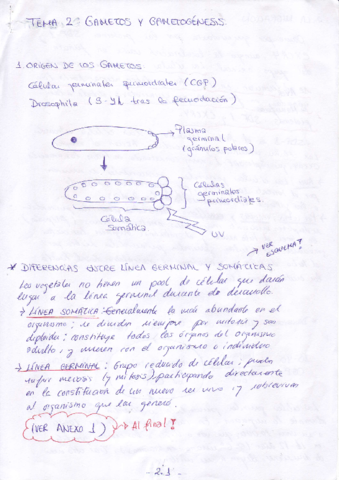 TEMA 2: GAMETOS Y GAMETOGÉNESIS
1. ORIGEN DE LOS GAMETOS
Células germinales primordiales (CGP)
Drosophila (3-4h tras la fecundación)
Plasma
germinal
(gránulos polares)
Células
germinales
primordiales
Célula
Somática
UV
VER
ESQUEMA!
* DIFERENCIAS ENTRE LÍNEA GERMINAL Y SOMÁTICAS
Los vegetales no tienen un pool de células que darán
lugar a la línea germinal durante de desarrollo.
→ LÍNEA SOMÁTICA: Generalmente la más abundante en el
organismo; se dividen siempre por mitosis y son
diploides; constituye todos los órganos del organismo
adulto; y mueren con el organismo o individuo
→ LÍNEA GERMINAL: Grupo reducido de células; pueden
sufrir meiosis (y mitosis), participando directamente
en la constitución de un nuevo ser vivo y
al organismo que las generó.
(VER ANEXO 1) → Al final!
- 2.1 -